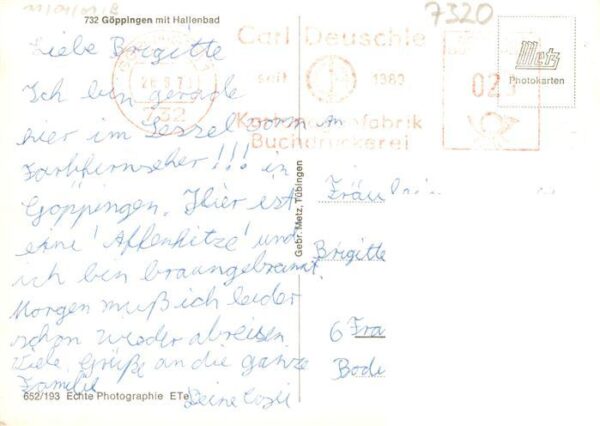 732 Göppingen mit Hallenbad
7320
Liebe Brigitte
Ich bin gerade
hier im Sessel vorm
Farbfernseher!!! in
Göppingen. Hier ist
eine "Affenhitze" und
ich bin braungebrannt.
Morgen muß ich leider
schon wieder abreisen.
Viele Grüße an die ganze
Familie
Deine
652/193 Echte Photographie ETe
Gebr. Metz, Tübingen
Carl Deuschle
seit 1389
Buchdruckerei
732
Metz
Photokarten
Fräulein
Brigitte
6 Fra
Bode